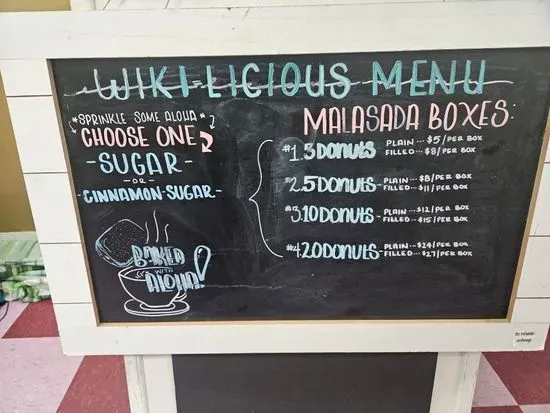 WIKI-LICIOUS MENU
*SPRINKLE SOME ALOHA*
CHOOSE ONE
-SUGAR-
-OR-
-CINNAMON-SUGAR-
BAKED
WITH
ALOHA!
MALASADA BOXES:
#1. 3 DONUTS - PLAIN --- $5/PER BOX
FILLED --- $8/PER BOX
#2. 5 DONUTS - PLAIN --- $8/PER BOX
FILLED -- $11/PER BOX
#3. 10 DONUTS - PLAIN --- $12/PER BOX
FILLED -- $15/PER BOX
#4. 20 DONUTS - PLAIN -- $24/PER BOX
FILLED -- $27/PER BOX
No refunds
exchange